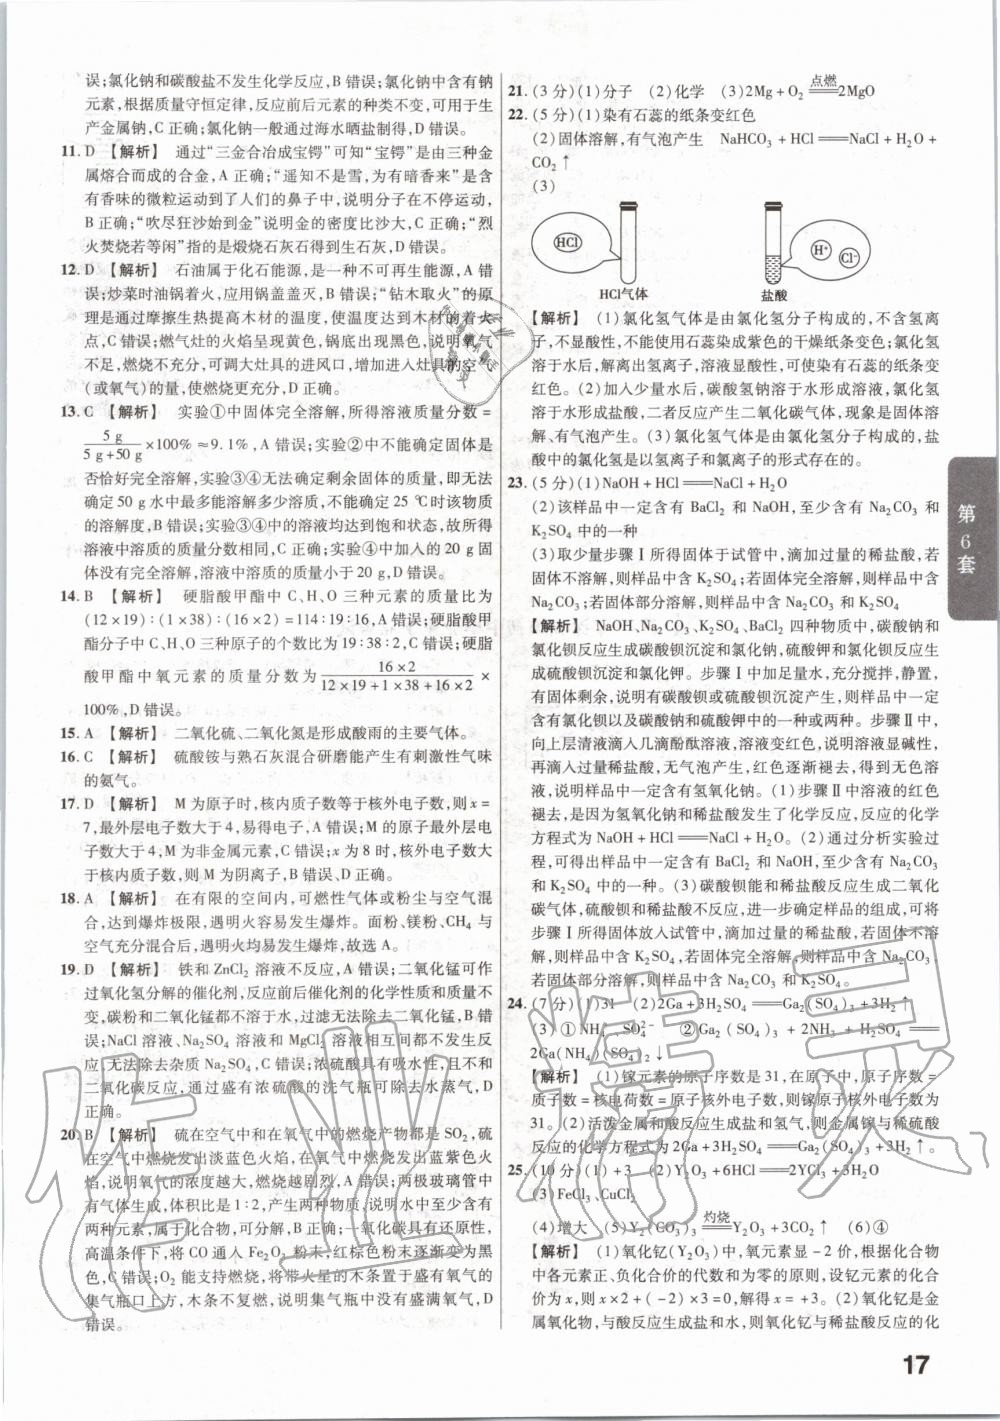 误;氯化钠和碳酸盐不发生化学反应,B 错误;氯化钠中含有钠
元素,根据质量守恒定律,反应前后元素的种类不变,可用于生
产金属钠,C 正确;氯化钠一般通过海水晒盐制得,D 错误。
11. D 【解析】 通过“三金合冶成宝锷”可知“宝锷”是由三种金
属熔合而成的合金,A 正确;“遥知不是雪,为有暗香来”是含
有香味的微粒运动到了人们的鼻子中,说明分子在不停运动,
B 正确;“吹尽狂沙始到金”说明金的密度比沙大,C 正确;“烈
火焚烧若等闲”指的是煅烧石灰石得到生石灰,D 错误。
12. D 【解析】 石油属于化石能源,是一种不可再生能源,A 错
误;炒菜时油锅着火,应用锅盖盖灭,B 错误;“钻木取火”的原
理是通过摩擦生热提高木材的温度,使温度达到木材的着火
点,C 错误;燃气灶的火焰呈现黄色,锅底出现黑色,说明氧气
不足,燃烧不充分,可调大灶具的进风口,增加进入灶具的空气
(或氧气)的量,使燃烧更充分,D 正确。
13. C 【解析】 实验①中固体完全溶解,所得溶液质量分数 =
5 g/(5 g+50 g)×100% ≈9.1%,A 错误;实验②中不能确定固体是
否恰好完全溶解,实验③④无法确定剩余固体的质量,即无法
确定 50 g 水中最多能溶解多少溶质,不能确定 25 ℃时该物质
的溶解度,B 错误;实验③④中的溶液均达到饱和状态,故所得
溶液中溶质的质量分数相同,C 正确;实验④中加入的 20 g 固
体没有完全溶解,溶液中溶质的质量小于 20 g,D 错误。
14. B 【解析】 硬脂酸甲酯中 C、H、O 三种元素的质量比为
(12×19):(1×38):(16×2)=114:19:16,A 错误;硬脂酸甲
酯分子中 C、H、O 三种原子的个数比为 19:38:2,C 错误;硬脂
酸甲酯中氧元素的质量分数为 16×2/(12×19+1×38+16×2) ×
100%,D 错误。
15. A 【解析】 二氧化硫、二氧化氮是形成酸雨的主要气体。
16. C 【解析】 硫酸铵与熟石灰混合研磨能产生有刺激性气味
的氨气。
17. D 【解析】 M 为原子时,核内质子数等于核外电子数,则 x=
7,最外层电子数大于 4,易得电子,A 错误;M 的原子最外层电
子数大于 4,M 为非金属元素,C 错误;x 为 8 时,核外电子数大
于核内质子数,则 M 为阴离子,B 错误,D 正确。
18. A 【解析】 在有限的空间内,可燃性气体或粉尘与空气混
合,达到爆炸极限,遇明火容易发生爆炸。面粉、镁粉、CH₄ 与
空气充分混合后,遇明火均易发生爆炸,故选 A。
19. D 【解析】 铁和 ZnCl₂ 溶液不反应,A 错误;二氧化锰可作
过氧化氢分解的催化剂,反应前后催化剂的化学性质和质量不
变,碳粉和二氧化锰都不溶于水,过滤无法除去二氧化锰,B 错
误;NaCl 溶液、Na₂SO₄ 溶液和 MgCl₂ 溶液相互间都不发生反
应,无法除去杂质 Na₂SO₄,C 错误;浓硫酸具有吸水性,且不和
二氧化碳反应,通过盛有浓硫酸的洗气瓶可除去水蒸气,D
正确。
20. B 【解析】 硫在空气中和在氧气中的燃烧产物都是 SO₂,硫
在空气中燃烧发出淡蓝色火焰,在氧气中燃烧发出蓝紫色火
焰,说明氧气的浓度越大,燃烧越剧烈,A 错误;两极玻璃管中
有气体生成,体积比是 1:2,产生两种物质,说明水中至少含有
两种元素,属于化合物,可分解,B 正确;一氧化碳具有还原性,
高温条件下,将 CO 通入 Fe₂O₃ 粉末,红棕色粉末逐渐变为黑
色,C 错误;O₂ 能支持燃烧,将带火星的木条置于盛有氧气的
集气瓶口上方,木条不复燃,说明集气瓶中没有盛满氧气,D
错误。
21. (3 分)(1)分子 (2)化学 (3)2Mg+O₂ ══点燃══ 2MgO
22. (5 分)(1)染有石蕊的纸条变红色
(2)固体溶解,有气泡产生 NaHCO₃ + HCl══NaCl + H₂O +
CO₂↑
(3)
HCl
H⁺
Cl⁻
HCl气体
盐酸
【解析】 (1)氯化氢气体是由氯化氢分子构成的,不含氢离
子,不显酸性,不能使用石蕊染成紫色的干燥纸条变色;氯化氢
溶于水后,解离出氢离子,溶液显酸性,可使石蕊的纸条变
红色。(2)加入少量水后,碳酸氢钠溶于水形成溶液,氯化氢
溶于水形成盐酸,二者反应产生二氧化碳气体,现象是固体溶
解、有气泡产生。(3)氯化氢气体是由氯化氢分子构成的,盐
酸中的氯化氢是以氢离子和氯离子的形式存在的。
23. (5 分)(1)NaOH + HCl══NaCl + H₂O
(2)该样品中一定含有 BaCl₂ 和 NaOH,至少含有 Na₂CO₃ 和
K₂SO₄ 中的一种
(3)取少量步骤Ⅰ所得固体于试管中,滴加过量的稀盐酸,若
固体不溶解,则样品中含 K₂SO₄;若固体完全溶解,则样品中含
Na₂CO₃;若固体部分溶解,则样品中含 Na₂CO₃ 和 K₂SO₄
【解析】 NaOH、Na₂CO₃、K₂SO₄、BaCl₂ 四种物质中,碳酸钠和
氯化钡反应生成碳酸钡沉淀和氯化钠,硫酸钾和氯化钡反应生
成硫酸钡沉淀和氯化钾。步骤Ⅰ中加足量水,充分搅拌,静置,
有固体剩余,说明有碳酸钡或硫酸钡沉淀产生,则样品中一定
含有氯化钡以及碳酸钠和硫酸钾中的一种或两种。步骤Ⅱ中,
向上层清液滴入几滴酚酞溶液,溶液变红色,说明溶液显碱性,
再滴入过量稀盐酸,无气泡产生,红色逐渐褪去,得到无色溶
液,说明样品中一定含有氢氧化钠。(1)步骤Ⅱ中溶液的红色
褪去,是因为氢氧化钠和稀盐酸发生了化学反应,反应的化学
方程式为 NaOH + HCl══NaCl + H₂O。(2)通过分析实验过
程,可得出样品中一定含有 BaCl₂ 和 NaOH,至少含有 Na₂CO₃
和 K₂SO₄ 中的一种。(3)碳酸钡能和稀盐酸反应生成二氧化
碳气体,硫酸钡和稀盐酸不反应,进一步确定样品的组成,可将
步骤Ⅰ所得固体放入试管中,滴加过量的稀盐酸,若固体不溶
解,则样品中含 K₂SO₄;若固体完全溶解,则样品中含 Na₂CO₃;
若固体部分溶解,则样品中含 Na₂CO₃ 和 K₂SO₄。
24. (7 分)(1)31 (2)2Ga+3H₂SO₄══Ga₂(SO₄)₃+3H₂↑
(3)①NH₄⁺ SO₄²⁻ ②Ga₂(SO₄)₃ + 2NH₃ + H₂SO₄══
2Ga(NH₄)(SO₄)₂↓
【解析】 (1)镓元素的原子序数是 31,在原子中,原子序数 =
质子数 = 核电荷数 = 原子核外电子数,则镓原子核外电子数为
31。(2)活泼金属和酸反应生成盐和氢气,则金属镓与稀硫酸
反应的化学方程式为 2Ga+3H₂SO₄══Ga₂(SO₄)₃+3H₂↑。
25. (10 分)(1)+3 (2)Y₂O₃ +6HCl══2YCl₃ +3H₂O
(3)FeCl₃、CuCl₂
(4)增大 (5)Y₂(CO₃)₃ ══灼烧══ Y₂O₃ +3CO₂↑ (6)④
【解析】 (1)氧化钇(Y₂O₃)中,氧元素显 -2 价,根据化合物
中各元素正、负化合价的代数和为零的原则,设钇元素的化合
价为 x,则 x×2 + (-2) ×3=0,解得 x = +3。(2)氧化钇是金
属氧化物,与酸反应生成盐和水,则氧化钇与稀盐酸反应的化
第6套
17
作业精灵